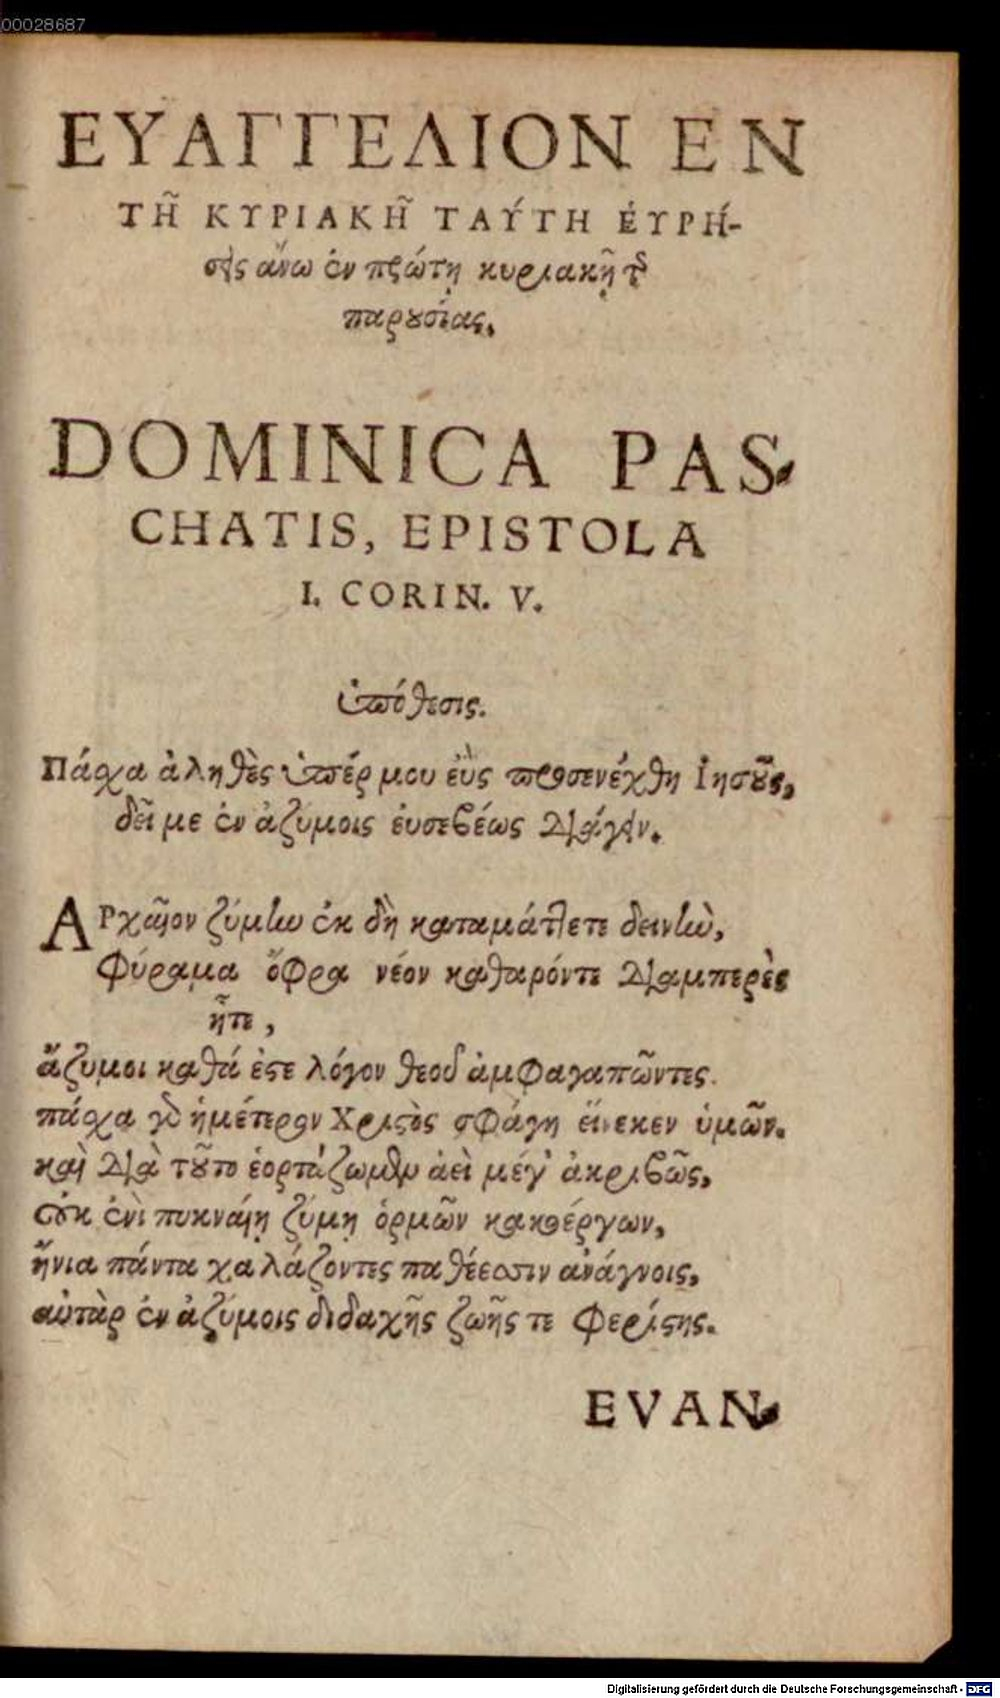 00028687
ΕΥΑΓΓΕΛΙΟΝ ΕΝ
ΤΗ͂ ΚΥΡΙΑΚΗ͂ ΤΑΎΤΗ ἐΥΡΉ-
σεις ἄνω ἐν πρώτῃ κυριακῇ τῆς
παρουσίας.
DOMINICA PAS-
CHATIS, EPISTOLA
I. CORIN. V.
ὑπόθεσις.
Πάσχα ἀληθὲς ὑπέρ μου ἐῢς προσενέχθη Ἰησοῦς,
δεῖ με ἐν ἀζύμοις ἐυσεβέως διάγειν.
ΑΡχαῖον ζύμην ἐκ δὴ καταμάττετε δεινὴν,
φύραμα ὄφρα νέον καθαρόντε διαμπερὲς
ἦτε,
ἄζυμοι καθά ἐστε λόγον θεοῦ ἀμφαγαπῶντες.
πάσχα γὰρ ἡμέτερον Χριστὸς σφάγη εἵνεκεν ὑμῶν.
καὶ διὰ τοῦτο ἑορτάζωμεν ἀεὶ μέγ' ἀκριβῶς,
οὐκ ἐνὶ πυκναίῃ ζύμῃ ὁρμῶν κακοέργων,
ἥνια πάντα χαλάζοντες παθέεσσιν ἀνάγνοις,
αὐτὰρ ἐν ἀζύμοις διδαχῆς ζωῆς τε φερίστης.
EVAN-
Digitalisierung gefördert durch die Deutsche Forschungsgemeinschaft - DFG